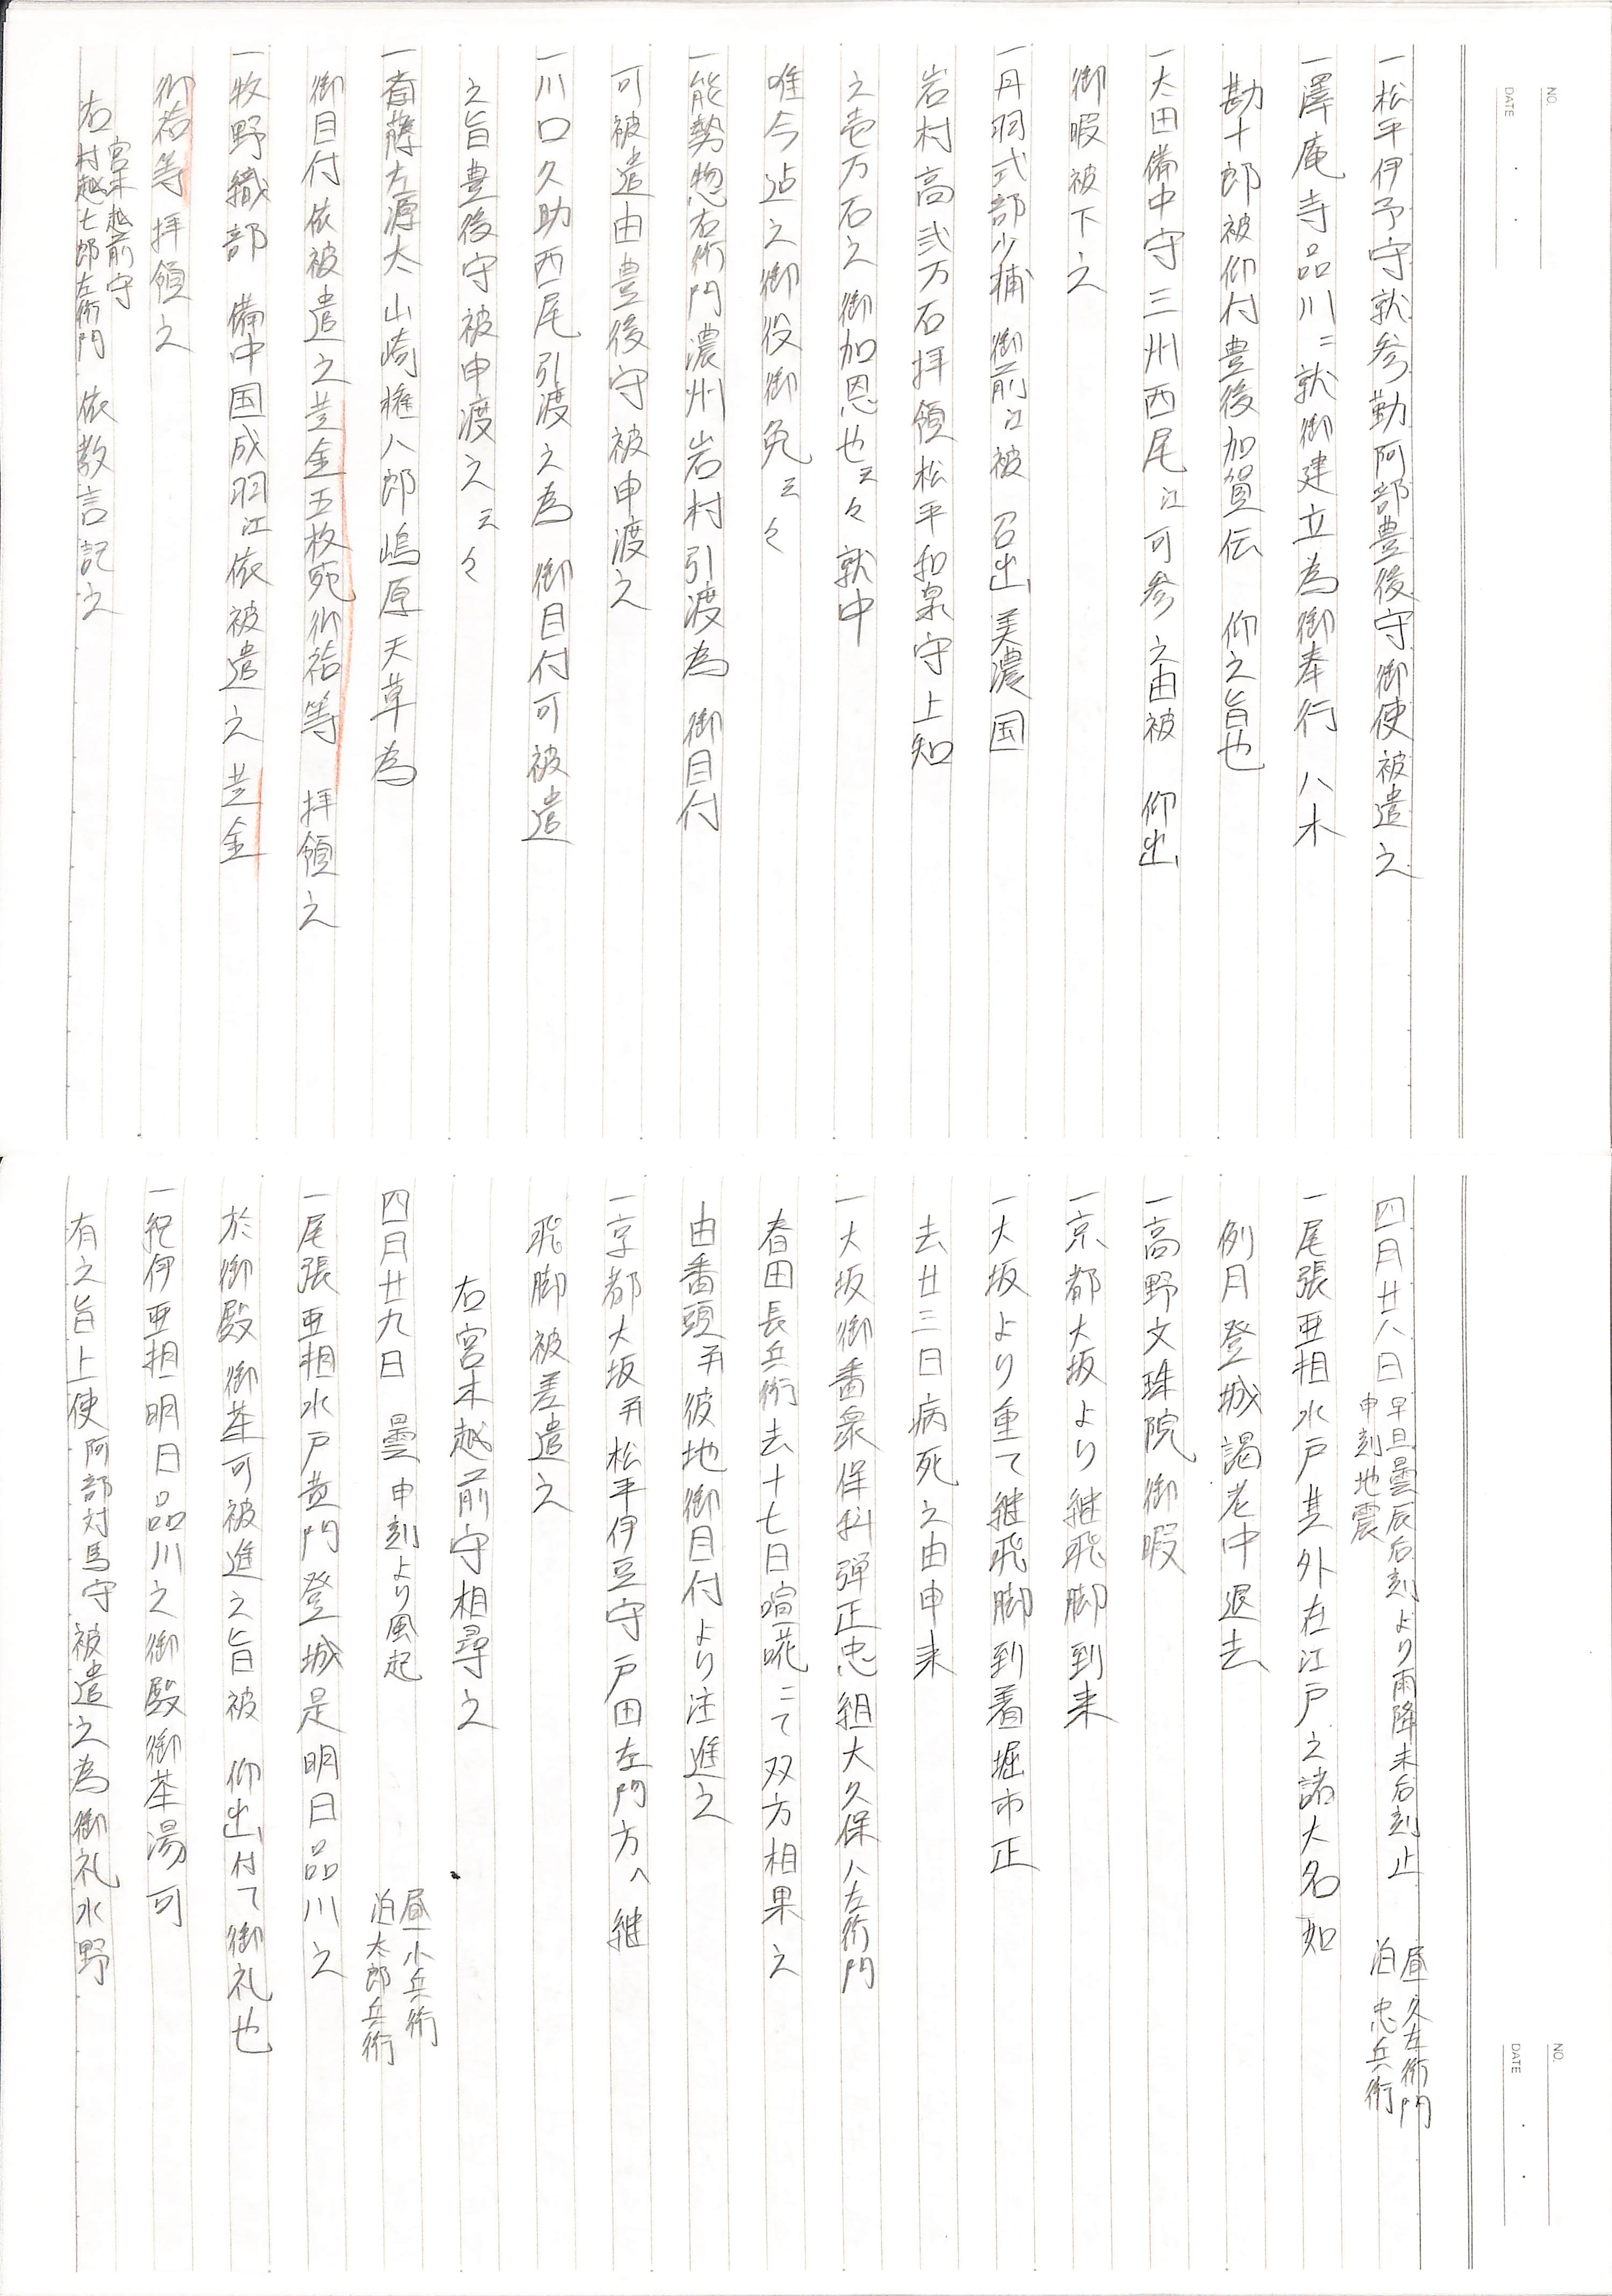 NO.
DATE
一松平伊予守就参勤阿部豊後守御使被遣之
一澤庵寺品川ニ就御建立為御奉行 八木
勘十郎被仰付豊後加賀伝 仰之旨也
一太田備中守三州西尾江可参之由被 仰出
御暇被下之
一丹羽式部少輔 御前江被 召出 美濃国
岩村高弐万石拝領松平和泉守上知
之壱万石之御加恩也云々就中
唯今迠之御役御免云々
一能勢惣右衛門濃州岩村引渡為 御目付
可被遣由豊後守被申渡之
一川口久助西尾引渡之為 御目付可被遣
之旨豊後守被申渡之云々
一斎藤左源太 山崎権八郎嶋原天草為
御目付依被遣之黄金五枚宛御袷等 拝領之
一牧野織部 備中国成羽江依被遣之黄金
御袷等拝領之
右 宮木越前守
村越七郎左衛門 依教言記之
NO.
DATE
四月廿八日 早旦曇辰后刻より雨降未后刻止 昼 久左衛門
申刻地震 泊 忠兵衛
一尾張亜相水戸其外在江戸之諸大名如
例月登城謁老中退去
一高野文珠院御暇
一京都大坂より継飛脚到来
一大坂より重て継飛脚到着堀市正
去廿三日病死之由申来
一大坂御番衆保科弾正忠組大久保八左衛門
春田長兵衛去十七日喧嘩ニて双方相果之
由番頭并彼地御目付より注進之
一京都大坂并松平伊豆守戸田左門方へ継
飛脚被差遣之
右宮木越前守相尋之
四月廿九日 曇 申刻より風起 昼 小兵衛
泊 太郎兵衛
一尾張亜相水戸黄門登城是明日品川之
於御殿御茶可被進之旨被 仰出付て御礼也
一紀伊亜相明日品川之御殿御茶湯可
有之旨上使阿部対馬守被遣之為御礼水野